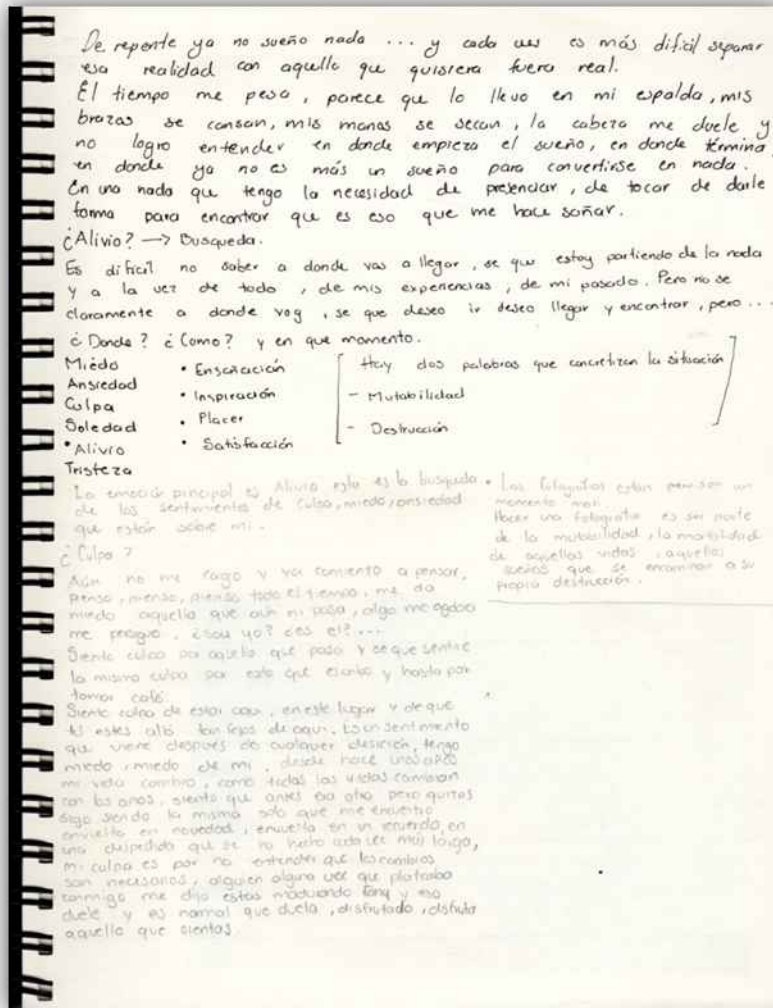 De repente ya no sueño nada ... y cada ves es más dificil separar
esa realidad con aquello que quisiera fuera real.
El tiempo me pesa, parece que lo llevo en mi espalda, mis
brazos se cansan, mis manos se secan, la cabeza me duele y
no logro entender en donde empieza el sueño, en donde términa,
en donde ya no es más un sueño para convertirse en nada.
En una nada que tengo la necesidad de presenciar, de tocar de darle
forma para encontrar que es eso que me hace soñar.
¿Alivio? → Busqueda.
Es dificil no saber a donde vas a llegar, se que estoy partiendo de la nada
y a la vez de todo, de mis experiencias, de mi pasado. Pero no se
claramente a donde voy, se que deseo ir deseo llegar y encontrar, pero ...
¿Donde? ¿Como? y en que momento.
Miedo
Ansiedad
Culpa
Soledad
• Alivio
Tristeza
• Ensoñación
• Inspiración
• Placer
• Satisfacción
Hay dos palabras que concretizan la situación
- Mutabilidad
- Destrucción
La emoción principal es Alivio esta es la busqueda
de los sentimientos de culpa, miedo, ansiedad
que están sobre mi.
• Las fotografias estan son un
momento
Hacer una fotografia es ser parte
de la mutabilidad, la
de aquellas vidas, aquellos
sueños que se encaminan a su
propia destrucción.
¿Culpa?
Aún no me caigo y ya comienzo a pensar,
pienso, pienso, pienso todo el tiempo, me da
miedo aquello que aún ni pasa, algo me agobia
me persigue, ¿soy yo? ¿es el?...
Siento culpa por aquello que pasó y se que sentiré
la misma culpa por esto que escribo y hasta por
tomar café.
Siento culpa de estar aqui, en este lugar y de que
tú estes allá tan lejos de aqui. Es un sentimiento
que viene después de cualquier desición, tengo
miedo, miedo de mi, desde hace unos años
mi vida cambio, como todas las vidas cambian
con los años, siento que antes era otra pero quizas
sigo siendo la misma solo que me encuentro
envuelta en novedad, envuelta en un recuerdo, en
una despedida que se ha hecho cada vez mas larga,
mi culpa es por no entender que los cambios
son necesarios, alguien alguna vez que platicaba
conmigo me dijo estás madurando Fany y eso
duele y es normal que duela, disfrutado, disfruta
aquello que sientas.